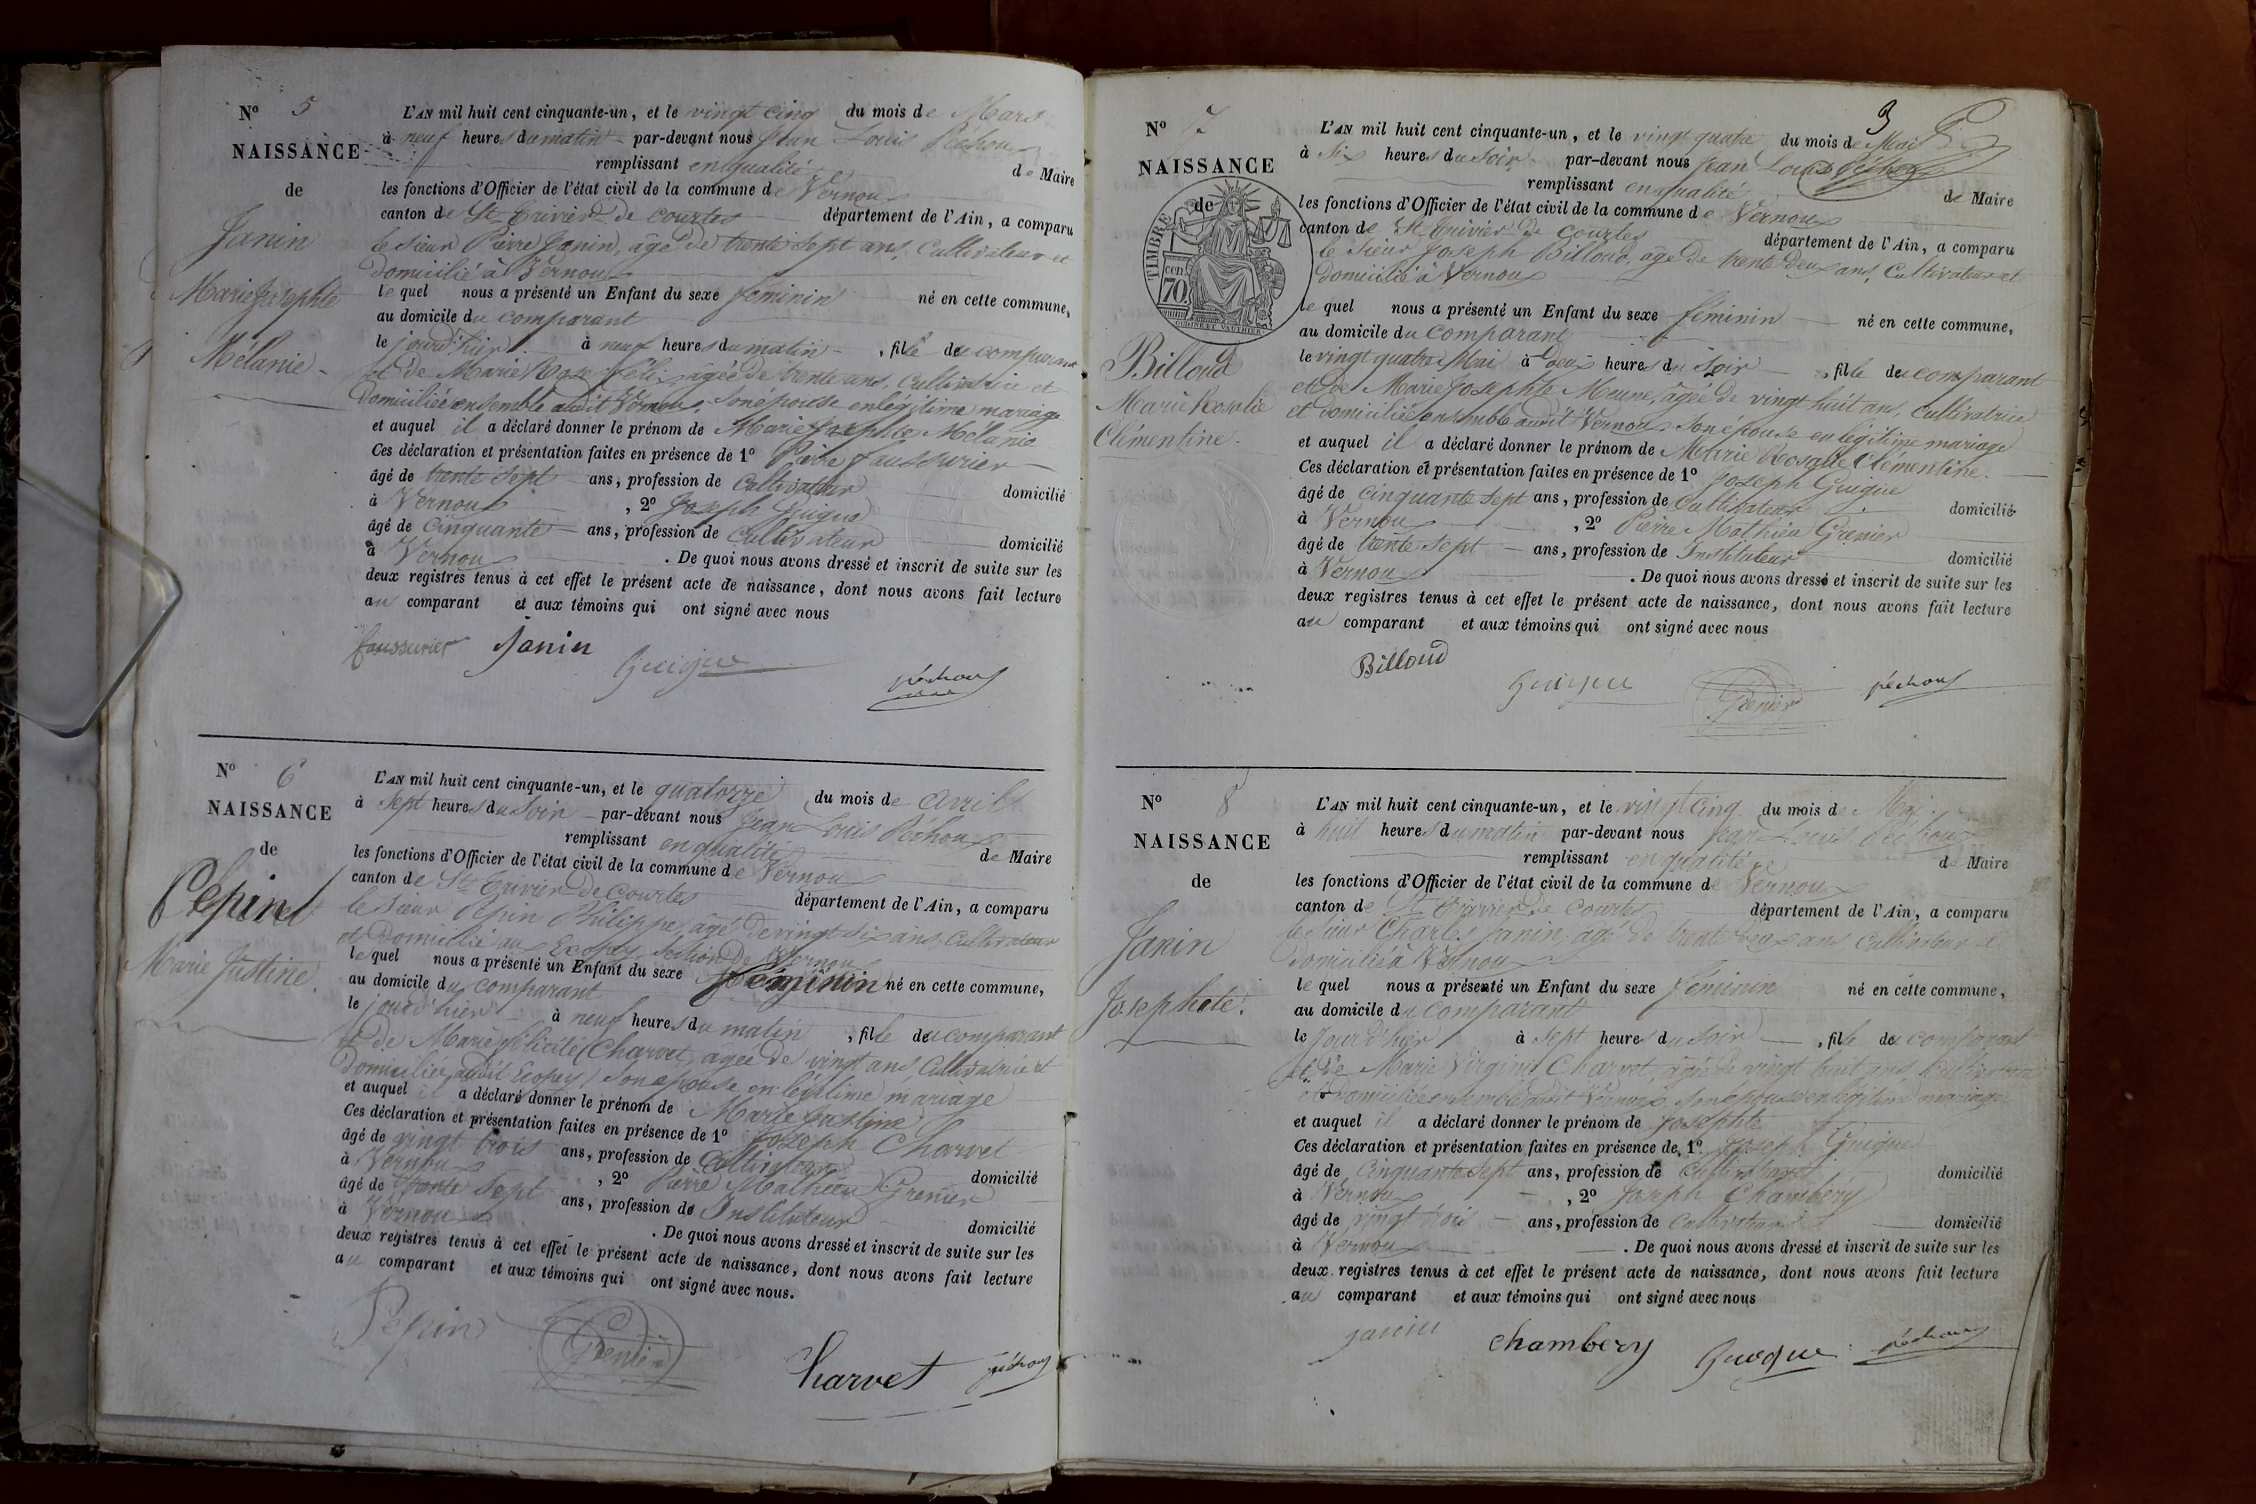 N° 5
NAISSANCE
de
Janin
Marie Josephte
Mélanie
L'AN mil huit cent cinquante-un, et le vingt cinq du mois de Mars
à neuf heures du matin par-devant nous Jean Louis Péchoux
remplissant en qualité de Maire
les fonctions d'Officier de l'état civil de la commune de Vernoux
canton de St Trivier de Courtes département de l'Ain, a comparu
le Sieur Pierre Janin, âgé de trente sept ans, Cultivateur et
domicilié à Vernoux
le quel nous a présenté un Enfant du sexe féminin né en cette commune,
au domicile du comparant
le jour d'hier à neuf heures du matin, fille du comparant
et de Marie Rose Félix âgée de trente ans, Cultivatrice et
domiciliée ensemble audit Vernoux, son épouse en légitime mariage
et auquel il a déclaré donner le prénom de Marie Josephte Mélanie
Ces déclaration et présentation faites en présence de 1° Pierre Faussurier
âgé de trente sept ans, profession de Cultivateur domicilié
à Vernoux, 2° Joseph Guigue
âgé de Cinquante ans, profession de Cultivateur domicilié
à Vernoux. De quoi nous avons dressé et inscrit de suite sur les
deux registres tenus à cet effet le présent acte de naissance, dont nous avons fait lecture
au comparant et aux témoins qui ont signé avec nous
faussurier Janin Guigue péchoux
N° 6
NAISSANCE
de
Pepin
Marie Justine.
L'AN mil huit cent cinquante-un, et le quatorze du mois de avril
à sept heures du Soir par-devant nous Jean Louis Péchoux
remplissant en qualité de Maire
les fonctions d'Officier de l'état civil de la commune de Vernoux
canton de St Trivier de Courtes département de l'Ain, a comparu
le Sieur Pépin Philippe, âgé de vingt six ans, Cultivateur
et domicilié au Ecopey, Section de Vernoux
le quel nous a présenté un Enfant du sexe féminin né en cette commune,
au domicile du comparant
le jour d'hier à neuf heures du matin, fille du comparant
et de Marie félicité Charvet, agée de vingt ans Cultivatrice et
domiciliée audit Ecopey, son epouse en légitime mariage
et auquel il a déclaré donner le prénom de Marie Justine
Ces déclaration et présentation faites en présence de 1° Joseph Charvet
âgé de vingt trois ans, profession de Cultivateur domicilié
à Vernoux, 2° Pierre Mathieu Grenier
âgé de trente sept ans, profession de Instituteur domicilié
à Vernoux. De quoi nous avons dressé et inscrit de suite sur les
deux registres tenus à cet effet le présent acte de naissance, dont nous avons fait lecture
au comparant et aux témoins qui ont signé avec nous.
Pepin Grenier Charvet péchoux
3
N° 7
NAISSANCE
de
TIMBRE
cen
70
Billoud
Marie Rosalie
Clémentine.
L'AN mil huit cent cinquante-un, et le vingt quatre du mois de Mai
à Six heures du Soir par-devant nous Jean Louis Péchoux
remplissant en qualité de Maire
les fonctions d'Officier de l'état civil de la commune de Vernoux
canton de St Trivier de Courtes département de l'Ain, a comparu
le Sieur Joseph Billoud, âgé de trente deux ans, Cultivateur et
domicilié à Vernoux
le quel nous a présenté un Enfant du sexe féminin né en cette commune,
au domicile du Comparant
le vingt quatre Mai à deux heures du Soir, fille du comparant
et de Marie Josephte Meune, âgée de vingt huit ans, Cultivatrice
et domiciliée ensemble audit Vernoux, Son épouse en légitime mariage
et auquel il a déclaré donner le prénom de Marie Rosalie Clémentine.
Ces déclaration et présentation faites en présence de 1° Joseph Guigue
âgé de cinquante sept ans, profession de Cultivateur domicilié
à Vernoux, 2° Pierre Mathieu Grenier
âgé de trente sept ans, profession de Instituteur domicilié
à Vernoux. De quoi nous avons dressé et inscrit de suite sur les
deux registres tenus à cet effet le présent acte de naissance, dont nous avons fait lecture
au comparant et aux témoins qui ont signé avec nous
Billoud Guigue Grenier péchoux
N° 8
NAISSANCE
de
Janin
Josephete.
L'AN mil huit cent cinquante-un, et le vingt cinq du mois de Mai
à huit heures du matin par-devant nous Jean Louis Péchoux
remplissant en qualité de Maire
les fonctions d'Officier de l'état civil de la commune de Vernoux
canton de St Trivier de Courtes département de l'Ain, a comparu
le Sieur Charles Janin, âgé de trente deux ans Cultivateur et
domicilié à Vernoux
le quel nous a présenté un Enfant du sexe féminin né en cette commune,
au domicile du comparant
le Jour d'hier à sept heures du Soir, fille du comparant
et de Marie Virginie Charvet, âgée de vingt huit ans, Cultivatrice
et domiciliée ensemble audit Vernoux, Son épouse en légitime mariage
et auquel il a déclaré donner le prénom de Josephte
Ces déclaration et présentation faites en présence de 1° Joseph Guigue
âgé de Cinquante sept ans, profession de Cultivateur domicilié
à Vernoux, 2° Joseph Chambery
âgé de vingt trois ans, profession de Cultivateur domicilié
à Vernoux. De quoi nous avons dressé et inscrit de suite sur les
deux registres tenus à cet effet le présent acte de naissance, dont nous avons fait lecture
au comparant et aux témoins qui ont signé avec nous
janin Chambery Guigue péchoux